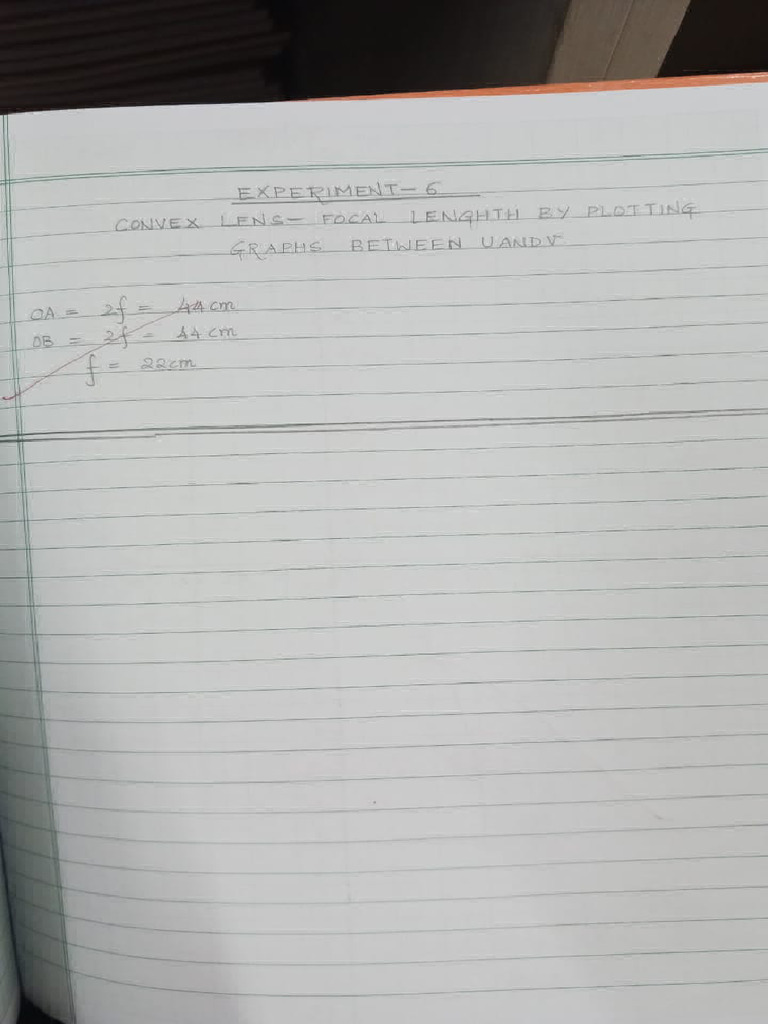 EXPERIMENT-6
CONVEX LENS- FOCAL LENGHTH BY PLOTTING
GRAPHS BETWEEN U AND V
OA = 2f = 44 cm
OB = 2f = 44 cm
f = 22cm